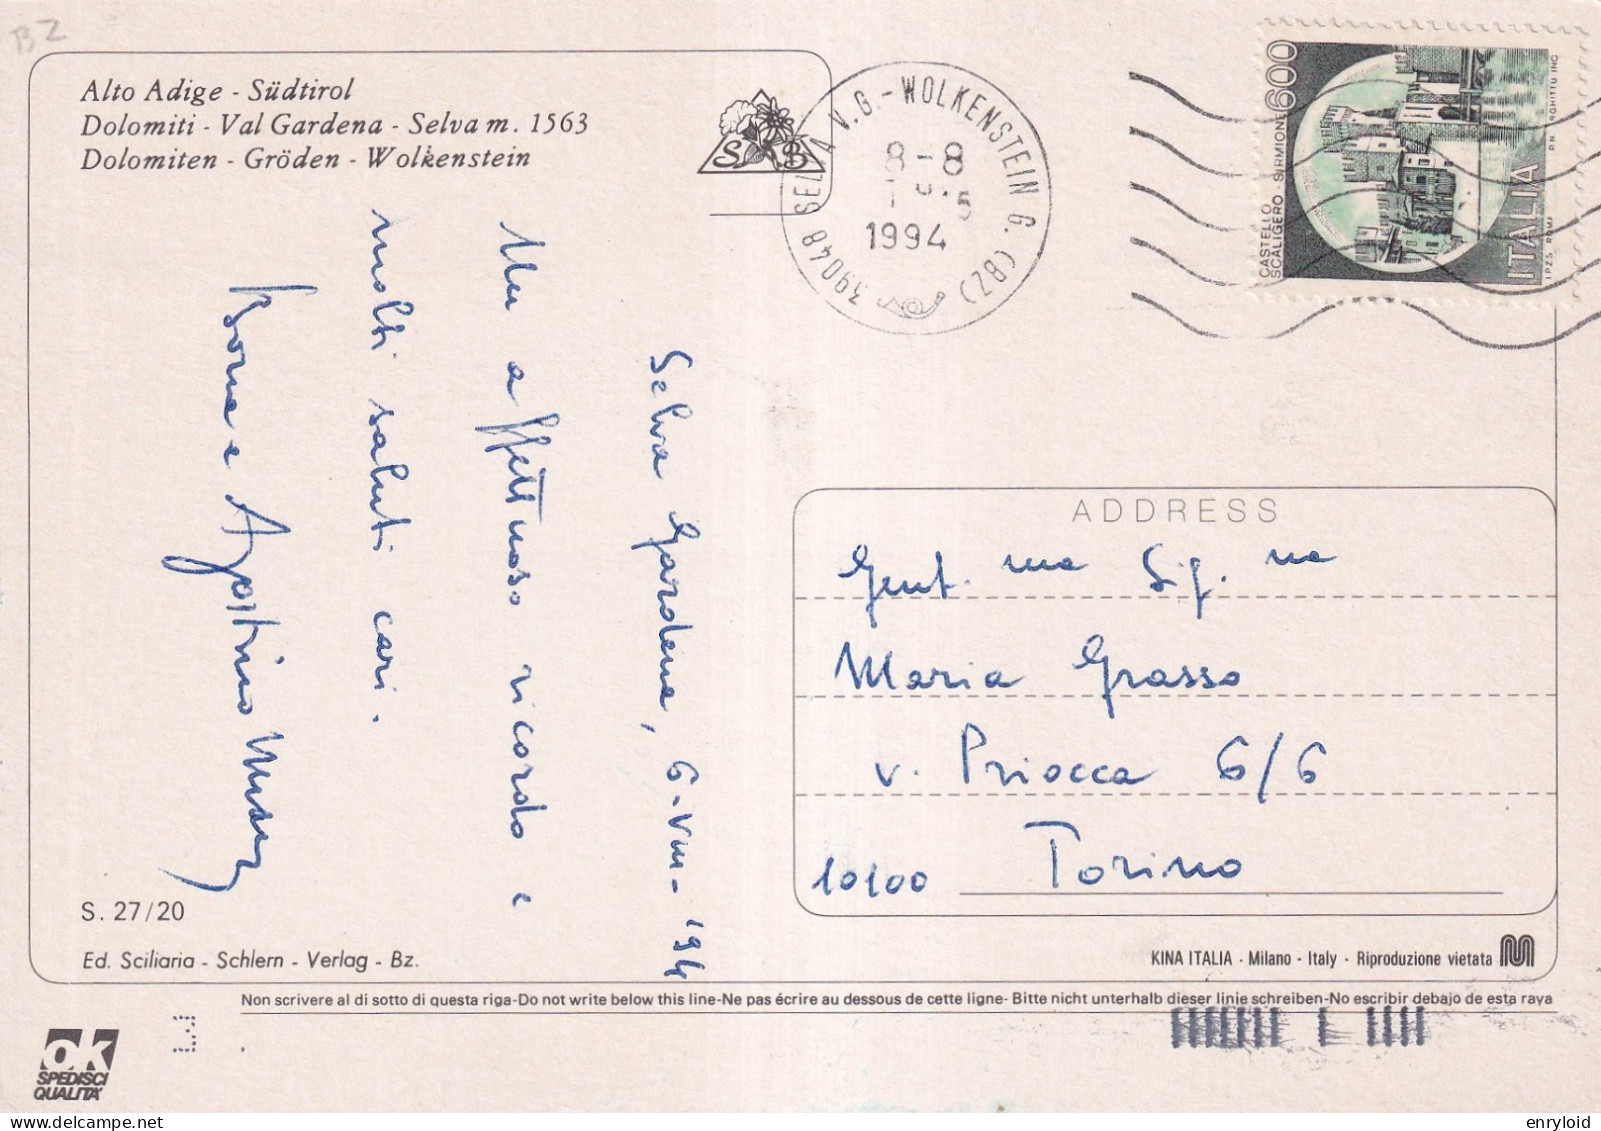 BZ
Alto Adige - Südtirol
Dolomiti - Val Gardena - Selva m. 1563
Dolomiten - Gröden - Wolkenstein
S B
39048 SELVA V.G. - WOLKENSTEIN G. (BZ)
8-8
1994
600
CASTELLO
SCALIGERO - SIRMIONE
ITALIA
I.P.Z.S. ROMA
Selva Gardena, 6-VIII-'94
Un affettuoso ricordo e
molti saluti cari.
Agostino
ADDRESS
Gent.ma Sig.na
Maria Grasso
v. Priocca 6/6
10100 Torino
S. 27/20
Ed. Sciliaria - Schlern - Verlag - Bz.
KINA ITALIA · Milano - Italy · Riproduzione vietata
Non scrivere al di sotto di questa riga-Do not write below this line-Ne pas écrire au dessous de cette ligne- Bitte nicht unterhalb dieser linie schreiben-No escribir debajo de esta raya
OK
SPEDISCI
QUALITA'
enryloid